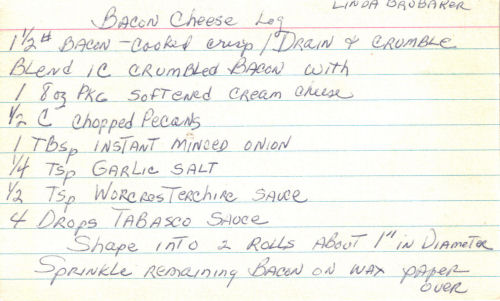 LINDA BRUBAKER
BACON Cheese Log
1 1/2 # BACON - Cooked crisp / DRAIN & CRUMBLE
BLEND 1C CRUMBLED BACON with
1 8oz PKG Softened CREAM Cheese
1/2 C Chopped Pecans
1 TBsp INSTANT MINCED ONION
1/4 Tsp GARLIC SALT
1/2 Tsp WORCRESTERCHIRE SAUCE
4 DROPS TABASCO SAUCE
Shape INTO 2 ROLLS ABOUT 1" IN DIAMETER
SPRINKLE REMAINING BACON ON WAX PAPER
OVER